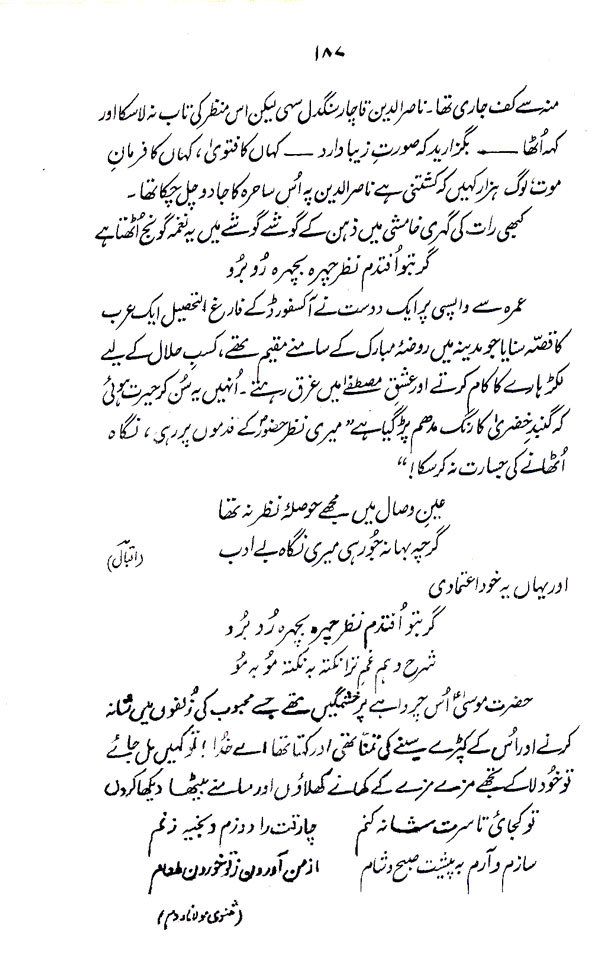 ۱۸۷
منہ سے کف جاری تھا۔ ناصرالدین قاچار سنگدل سہی لیکن اس منظر کی تاب نہ لاسکا اور
کہہ اُٹھا —— بگزارید کہ صورتِ زیبا دارد —— کہاں کا فتویٰ، کہاں کا فرمانِ
موت، لوگ ہزار کہیں کہ کشتنی ہے ناصرالدین پہ اُس ساحرہ کا جادو چل چکا تھا۔
کبھی رات کی گہری خامشی میں ذہن کے گوشے گوشے میں یہ نغمہ گونج اُٹھتا ہے
گر بتو اُفتدم نظر چہرہ بچہرہ رُو بُرو
عمرہ سے واپسی پر ایک دوست نے آکسفورڈ کے فارغ التحصیل ایک عرب
کا قصّہ سنایا جو مدینہ میں روضۂ مبارک کے سامنے مقیم تھے، کسبِ حلال کے لیے
لکڑ ہارے کا کام کرتے اور عشقِ مصطفیٰؐ میں غرق رہتے۔ اُنہیں یہ سُن کر حیرت ہوئی
کہ گنبدِ خضریٰ کا رنگ مدھم پڑ گیا ہے ”میری نظر حضورؐ کے قدموں پر رہی، نگاہ
اُٹھانے کی جسارت نہ کرسکا!“
عینِ وصال میں مجھے حوصلۂ نظر نہ تھا
گرچہ بہانہ جُو رہی میری نگاہِ بے ادب
(اقبالؔ)
اور یہاں یہ خود اعتمادی
گر بتو اُفتدم نظر چہرہ بچہرہ رُو بُرو
شرح دہم غمِ ترا نکتہ بہ نکتہ مُو بہ مُو
حضرت موسیٰؑ اُس چرواہے پر خشمگیں تھے جسے محبوب کی زُلفوں میں شانہ
کرنے اور اُس کے کپڑے سینے کی تمنّا تھی اور کہتا تھا اے خُدا! تُو کہیں مِل جائے
تو خُود لا کے تجھے مزے مزے کے کھانے کھلاؤں اور سامنے بیٹھا دیکھا کروں
تو کجائی تا سرت شانہ کنم چارقت را دوزم و بخیہ زنم
سازم و آرم بہ پیشت صبح و شام از من آوردن ز تو خوردن طعام
(مثنوی مولانا روم)